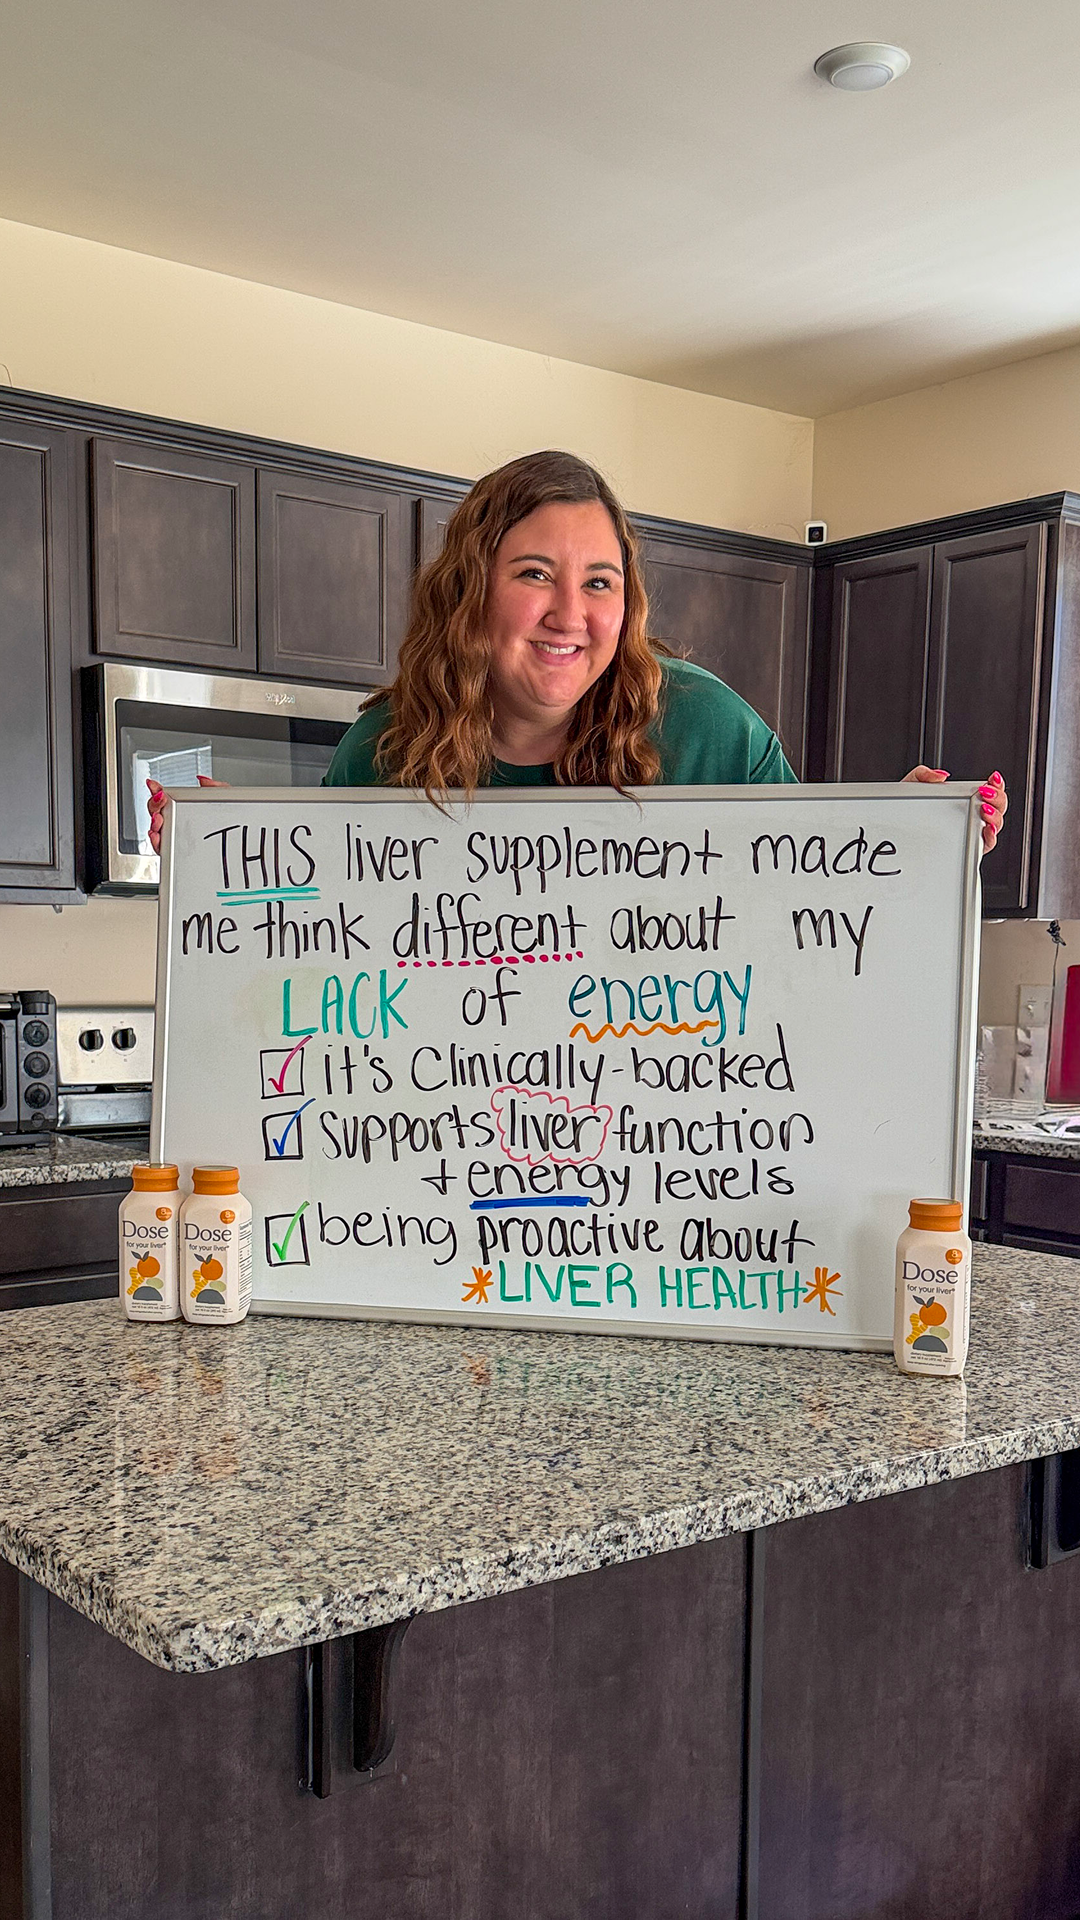 THIS liver supplement made
me think different about my
LACK of energy
it's clinically-backed
supports liver function
+ energy levels
being proactive about
*LIVER HEALTH*
Dose
for your liver
Dose
for your liver
Dose
for your liver